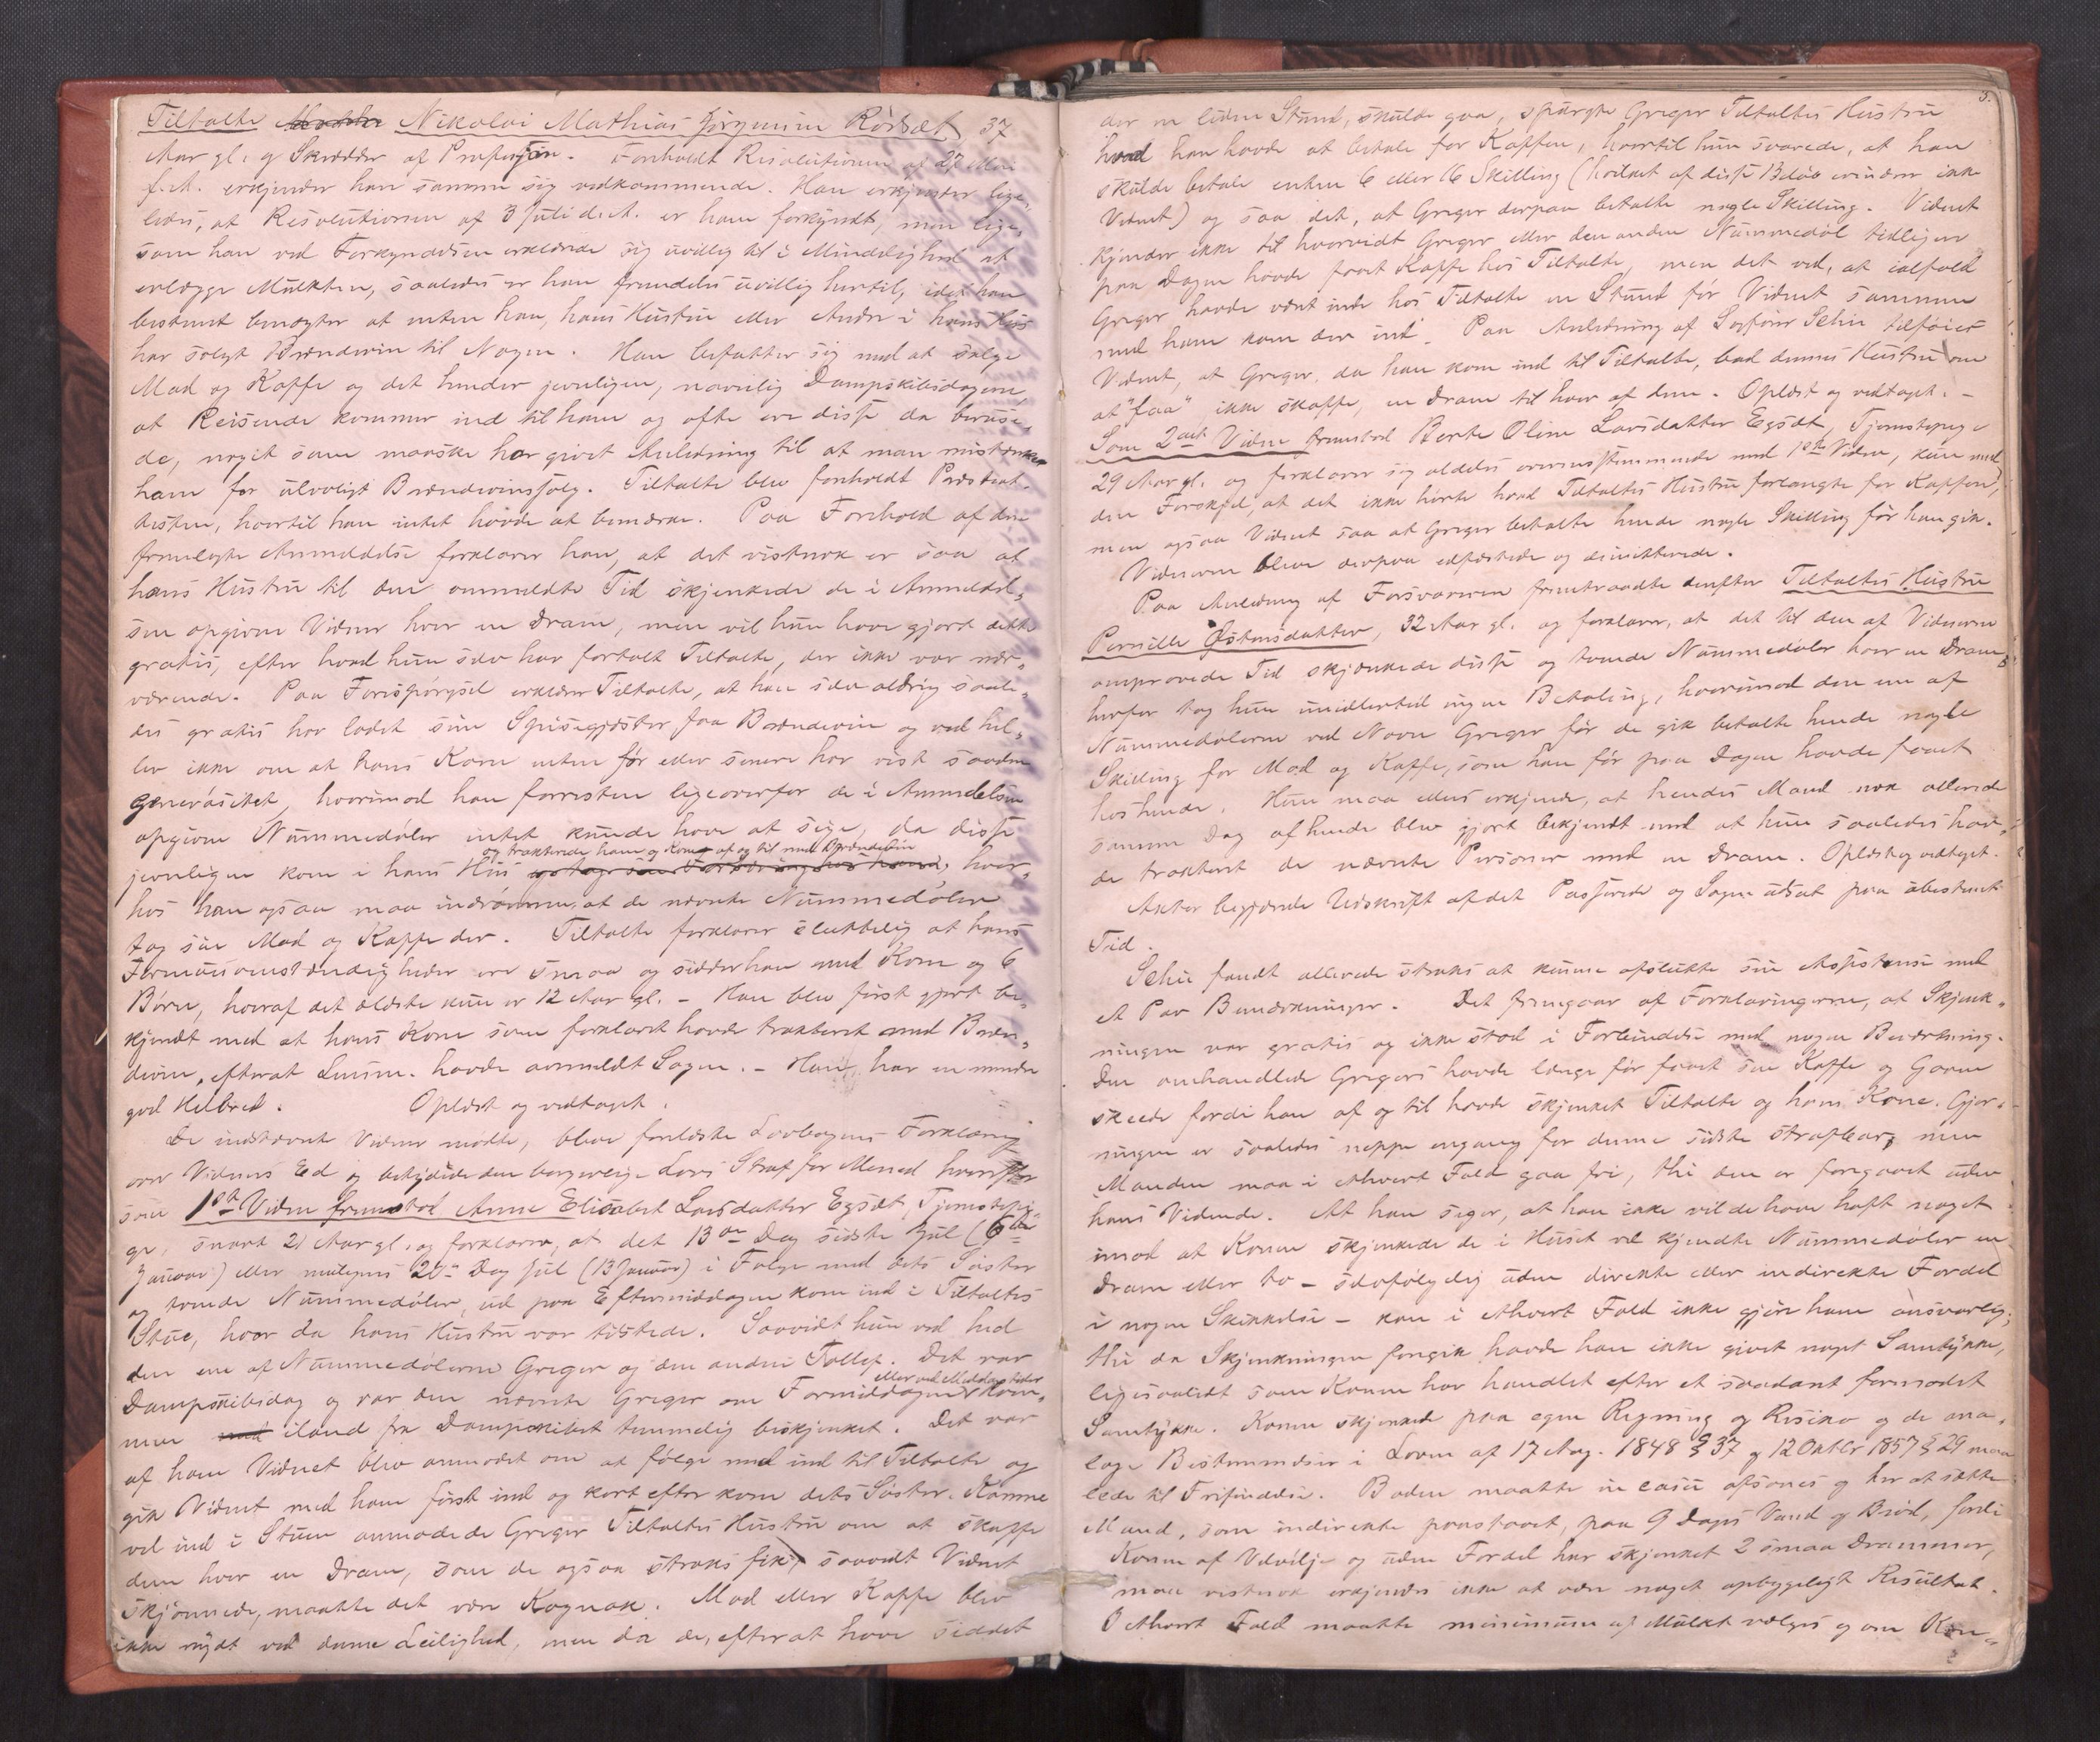 Tiltalte Nikolai Mathias Jørgensen Rørsæt 37
Aar gl. og Skrædder af Profession. Foreholdt Resolutionen af 27 Mai
f. A. erkjender han samme sig vedkommende. Han erkjender lige-
ledes, at Resolutionen af 3 Juli d. A. er ham forkyndt, men lige-
som han ved Forkyndelsen erklærede sig uvillig til i Mindelighed at
erlægge Mulkten, saaledes er han fremdeles uvillig hertil, idet han
bestemt benægter at enten han, hans Hustru eller Andre i hans Hus
har solgt Brændevin til Nogen. Han befatter sig med at sælge
Mad og Kaffe og det hender jevnligen, navnlig Dampskibsdagene
at Reisende kommer ind til ham og ofte ere disse da beruse-
de, noget som maaske har givet Anledning til at man mistænker
ham for ulovligt Brændevinssalg. Tiltalte blev foreholdt Præsteat-
testen, hvortil han intet havde at bemærke. Paa Forehold af den
fremlagte Anmeldelse forklarer han, at det vistnok er saa at
hans Hustru til den anmeldte Tid skjenkede de i Anmeldel-
sen opgivne Vidner hver en Dram, men vil hun have gjort dette
gratis, efter hvad hun selv har fortalt Tiltalte, der ikke var nær-
værende. Paa Forespørgsel erklærer Tiltalte, at han selv aldrig saale-
des gratis har ladet sine Spisegjæster faa Brændevin og ved hel-
ler ikke om at hans Kone enten før eller senere har vist saadan
generøsitet, hvorimod han forresten ligeoverfor de i Anmeldelsen
opgivne Nummedøler intet kunde have at sige, da disse
og trakterede ham og Kone af og til med Brændevin
jevnligen kom i hans Hus og tog sin Fortæring hos ham, hvor-
hos han ogsaa maa indrømme, at de nævnte Nummedøler
tog sin Mad og Kaffe der. Tiltalte forklarer sluttelig at hans
Formuesomstændigheder ere smaa og sidder han med Kone og 6
Børn, hvoraf det ældste kun er 12 Aar gl. – Han blev først gjort be-
kjendt med at hans Kone som forklaret havde trakteret med Bræn-
devin, efterat Lensm. havde anmeldt Sagen. – Han har en mindre
god Helbred. Oplæst og vedtaget.
De indstævnte Vidner mødte, bleve forelæste Lovbogens Forklaring
over Vidners Ed og betydede den borgerlige Lovs Straf for Mened hvorefter
som 1ste Vidne fremstod Anne Elisabet Larsdatter Egsæt, Tjenestepi-
ge, snart 21 Aar gl. og forklarer, at det 13de Dag sidste Jul (6te
Januar) eller muligens 20de Dag Jul (13 Januar) i Følge med dets Søster
og tvende Nummedøler, ud paa Eftermiddagen kom ind i Tiltaltes
Stue, hvor da hans Hustru var tilstede. Saavidt hun ved hed
den ene af Nummedølerne Greger og den anden Tollef. Det var
eller ved Middagstider
Dampskibsdag og var den nævnte Greger om Formiddagen kom-
men iland fra Dampskibet temmelig beskjenket. Det var
af ham Vidnet blev anmodet om at følge med ind til Tiltalte og
gik Vidnet med ham først ind og kort efter kom dets Søster. Komme
vel ind i Stuen anmodede Greger Tiltaltes Hustru om at skaffe
dem hver en Dram, som de ogsaa straks fik, saavidt Vidnet
skjønnede, maatte det være Kognak. Mad eller Kaffe blev
ikke nydt ved denne Leilighed, men da de, efterat have siddet
5.
der en liden Stund, skulde gaa, spurgte Greger Tiltaltes Hustru
hvad han havde at betale for Kaffen, hvortil hun svarede, at han
skulde betale enten 6 eller 16 Skilling (hvilket af disse Beløb erindrer ikke
Vidnet) og saa det, at Greger derpaa betalte nogle Skilling. Vidnet
kjender ikke til hvorvidt Greger eller den anden Nummedøl tidligere
paa Dagen havde faaet Kaffe hos Tiltalte, men det ved, at ialfald
Greger havde været inde hos Tiltalte en Stund før Vidnet sammen
med ham kom der ind. Paa Anledning af Sagfører Sehu tilføies
Vidnet, at Greger, da han kom ind til Tiltalte, bad dennes Hustru om
at "faa" ikke skaffe, en Dram til hver af dem. Oplæst og vedtaget. –
Som 2det Vidne fremstod Berte Oline Larsdatter Egsæt, Tjenestepige
29 Aar gl. og forklarer sig aldeles overensstemmende med 1ste Vidne, kun med
den Forskjel, at det ikke hørte hvad Tiltaltes Hustru forlangte for Kaffen,
men ogsaa Vidnet saa at Greger betalte hende nogle Skilling før han gik.
Vidnerne bleve derpaa edfæstede og dimitterede.
Paa Anledning af Forsvareren fremtraadte derefter Tiltaltes Hustru
Pernille Østensdatter, 32 Aar gl. og forklarer, at det til den af Vidnerne
omprovede Tid skjænkede disse og tvende Nummedøler hver en Dram,
herfor tog hun imidlertid ingen Betaling, hvorimod den ene af
Nummedølerne ved Navn Greger før de gik betalte hende nogle
Skilling for Mad og Kaffe, som han før paa Dagen havde faaet
hos hende. Hun maa ellers erkjende, at hendes Mand nok allerede
samme Dag af hende blev gjort bekjendt med at hun saaledes hav-
de trakteret de nævnte Personer med en Dram. Oplæst og vedtaget.
Aktor begjærede Udskrift af det Passerede og Sagen udsat paa ubestemt
Tid.
Sehu fandt allerede straks at kunne afslutte sin Assistense med
et Par Bemærkninger. Det fremgaar af Forklaringerne, at Skjenk-
ningen var gratis og ikke stod i Forbindelse med nogen Beværtning.
Den omhandlede Gregers havde længe før faaet sin Kaffe og Gaven
skeede fordi han af og til havde skjenket Tiltalte og hans Kone. Gjer-
ningen er saaledes neppe engang for denne sidste strafbar, men
Manden maa i ethvert Fald gaa fri, thi den er foregaaet uden
hans Vidende. At han siger, at han ikke vilde have haft noget
imod at Konen skjenkede de i Huset vel kjendte Nummedøler en
Dram eller to – selvfølgelig uden direkte eller indirekte Fordel
i nogen Skikkelse – kan i ethvert Fald ikke gjøre ham ansvarlig;
thi da Skjenkningen foregik havde han ikke givet noget Samtykke,
ligesaalidt som Konen har handlet efter et saadant formodet
Samtykke. Konen skjenkede paa egen Regning og Risiko og de ana-
loge Bestemmelser i Loven af 17 Aug. 1848 § 37 og 12 Oktbr 1857 § 29 maa
lede til Frifindelse. Boden maatte in casu afsones og her at sætte
Mand, som indirekte paastaaet, paa 9 Dages Vand og Brød, fordi
Konen af Velvilje og uden Fordel har skjenket 2 smaa Drammer,
maa vistnok erkjendes ikke at være noget opbyggeligt Resultat.
I ethvert Fald maatte minimum af Mulkt vælges og om Kon-